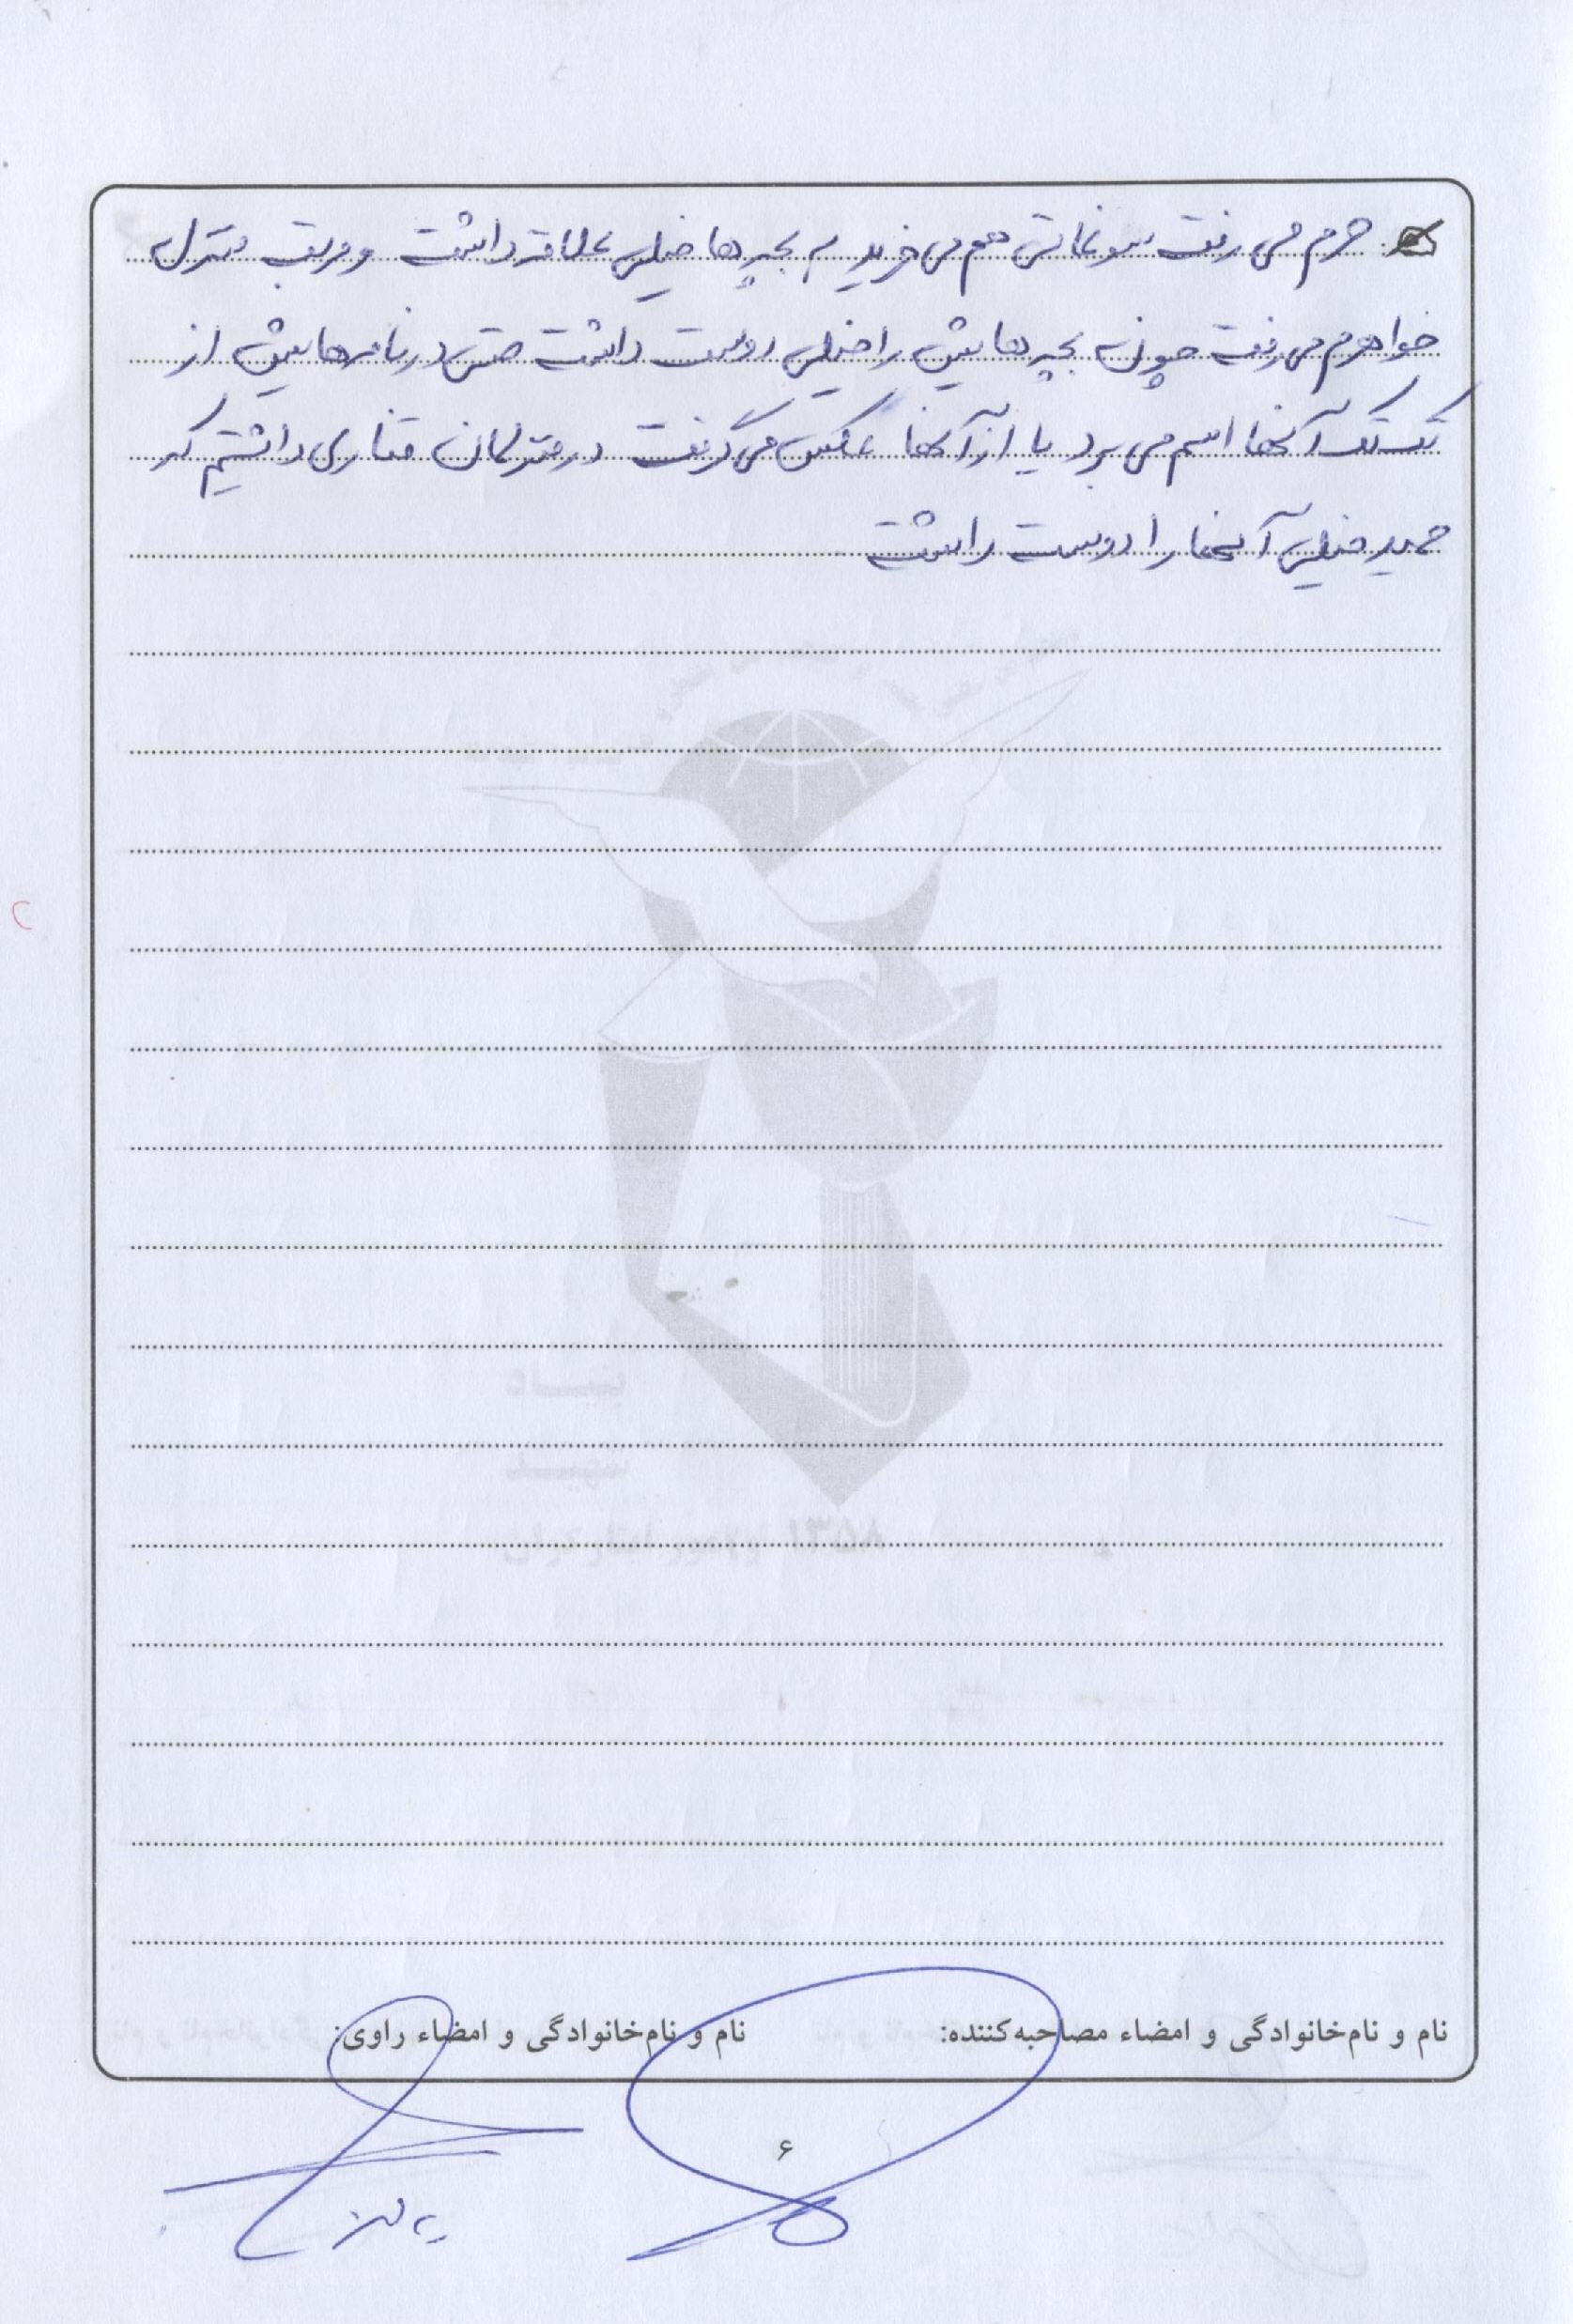 حرم می رفت سوغاتی هم می خرید به بچه ها خیلی علاقه داشت و مرتب منزل
خواهرم می رفت چون بچه هایش را خیلی دوست داشت حتی در نامه هایش از
تک تک آنها اسم می برد یا از آنها عکس می گرفت در منزلمان قناری داشتیم که
حمید خیلی آنها را دوست داشت
نام و نام‌خانوادگی و امضاء مصاحبه‌کننده:
نام و نام‌خانوادگی و امضاء راوی:
۶